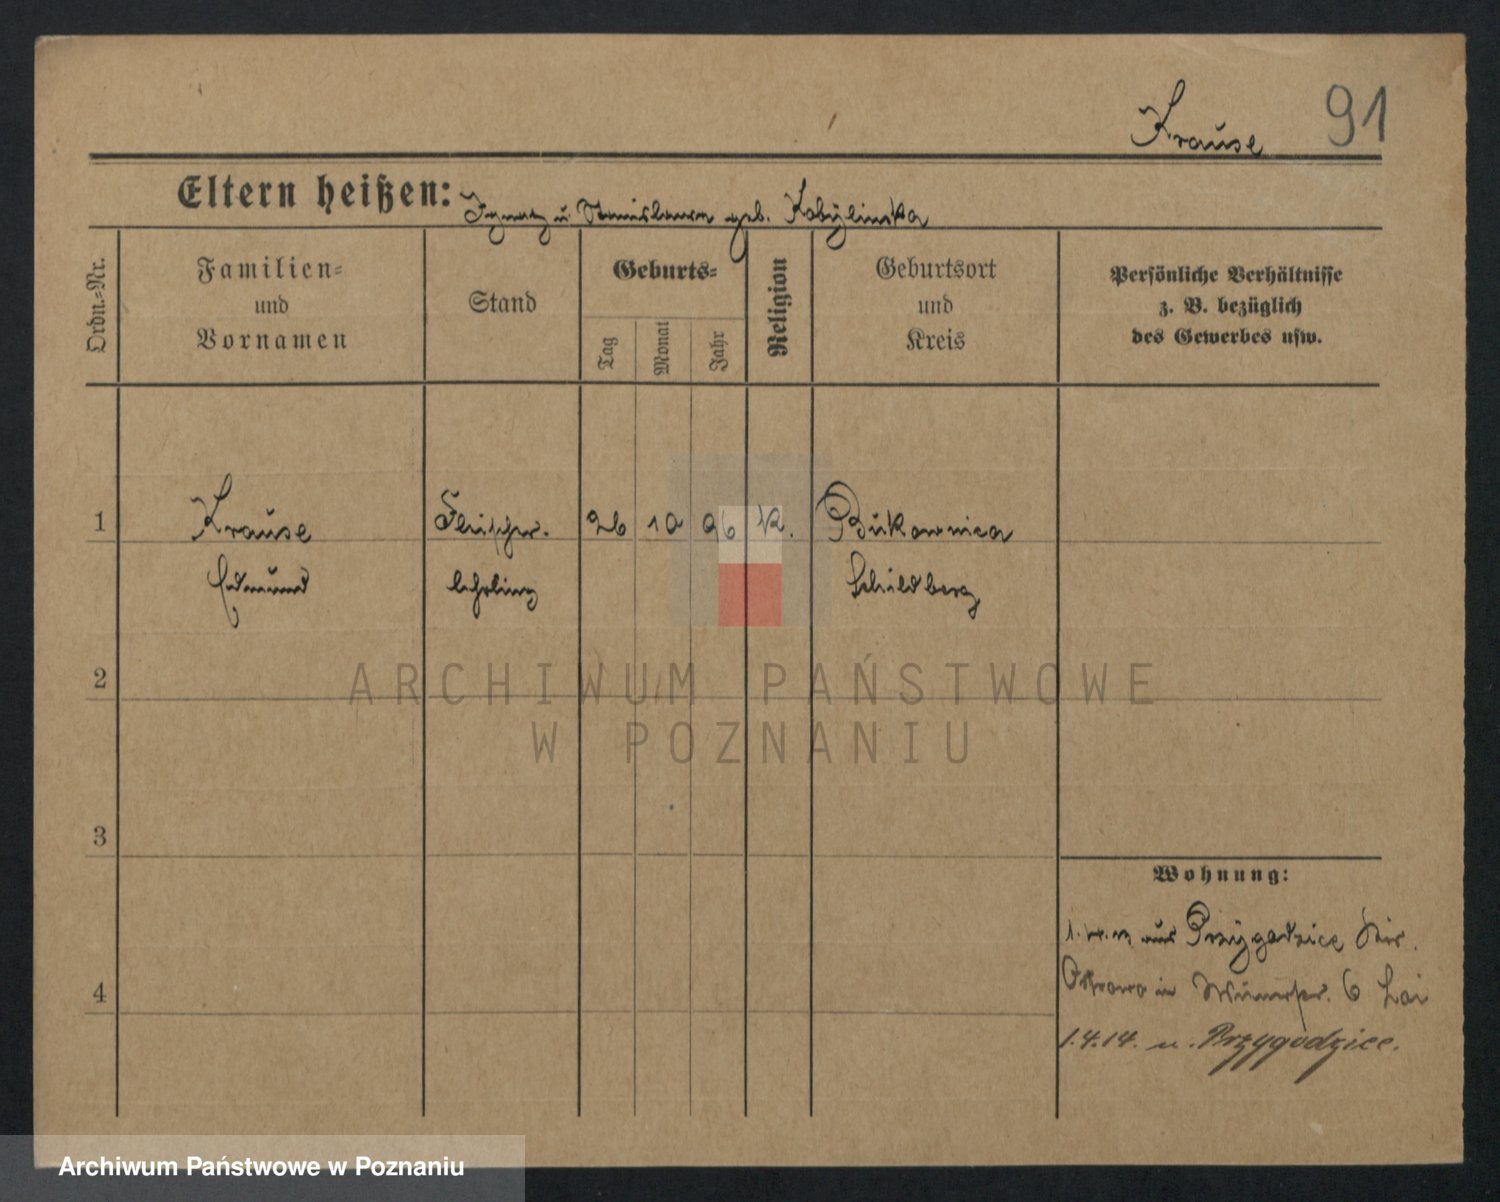 Krause 91
Eltern heißen: Ignatz u. Stanislawa geb. Kobylinska
Ordn.=Nr.
Familien=
und
Vornamen
Stand
Geburts=
Tag
Monat
Jahr
Religion
Geburtsort
und
Kreis
Persönliche Verhältnisse
z. B. bezüglich
des Gewerbes usw.
1 Krause Fleischer. 26 10 96 K. Bukownica
Edmund lehrling Schildberg
2
ARCHIWUM PAŃSTWOWE
W POZNANIU
3
Wohnung:
aus Przygodzice Kr.
4 Ostrowo in 6
1.4.14. n. Przygodzice.
Archiwum Państwowe w Poznaniu